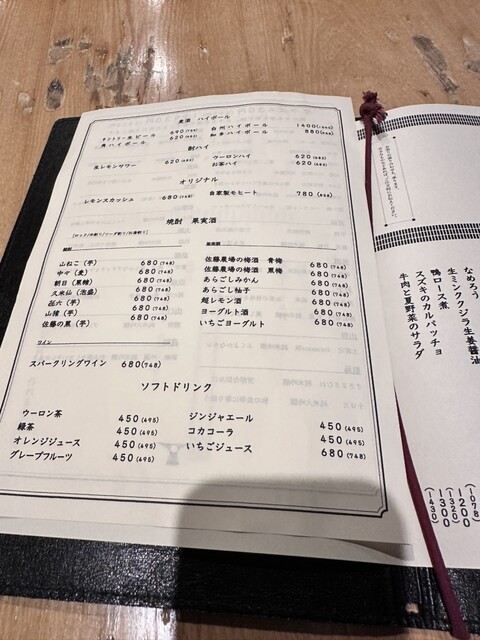 麦酒 ハイボール
サントリー生ビール 690(759) 白州ハイボール 1400(1540)
角ハイボール 620(682) 知多ハイボール 880(968)
酎ハイ
生レモンサワー 620(682) ウーロンハイ 620(682)
お茶ハイ 620(682)
オリジナル
レモンスカッシュ 680(748) 自家製モヒート 780(858)
焼酎 果実酒
山ねこ(芋) 680(748)
中々(麦) 680(748)
朝日(黒糖) 680(748)
久米仙(泡盛) 680(748)
㐂六(芋) 680(748)
山猪(芋) 680(748)
佐藤の黒(芋) 680(748)
果実酒
佐藤農場の梅酒 青梅 680(748)
佐藤農場の梅酒 黒梅 680(748)
あらごしみかん 680(748)
あらごし柚子 680(748)
越レモン酒 680(748)
ヨーグルト酒 680(748)
いちごヨーグルト 680(748)
ワイン
スパークリングワイン 680(748)
ソフトドリンク
ウーロン茶 450(495)
緑茶 450(495)
オレンジジュース 450(495)
グレープフルーツ 450(495)
ジンジャエール 450(495)
コカコーラ 450(495)
いちごジュース 680(748)
なめろう
生ミンククジラ生姜醤油
鴨ロース煮
スズキのカルパッチョ
牛肉と夏野菜のサラダ
(1078)
1200
(1320)
1300
(1430)